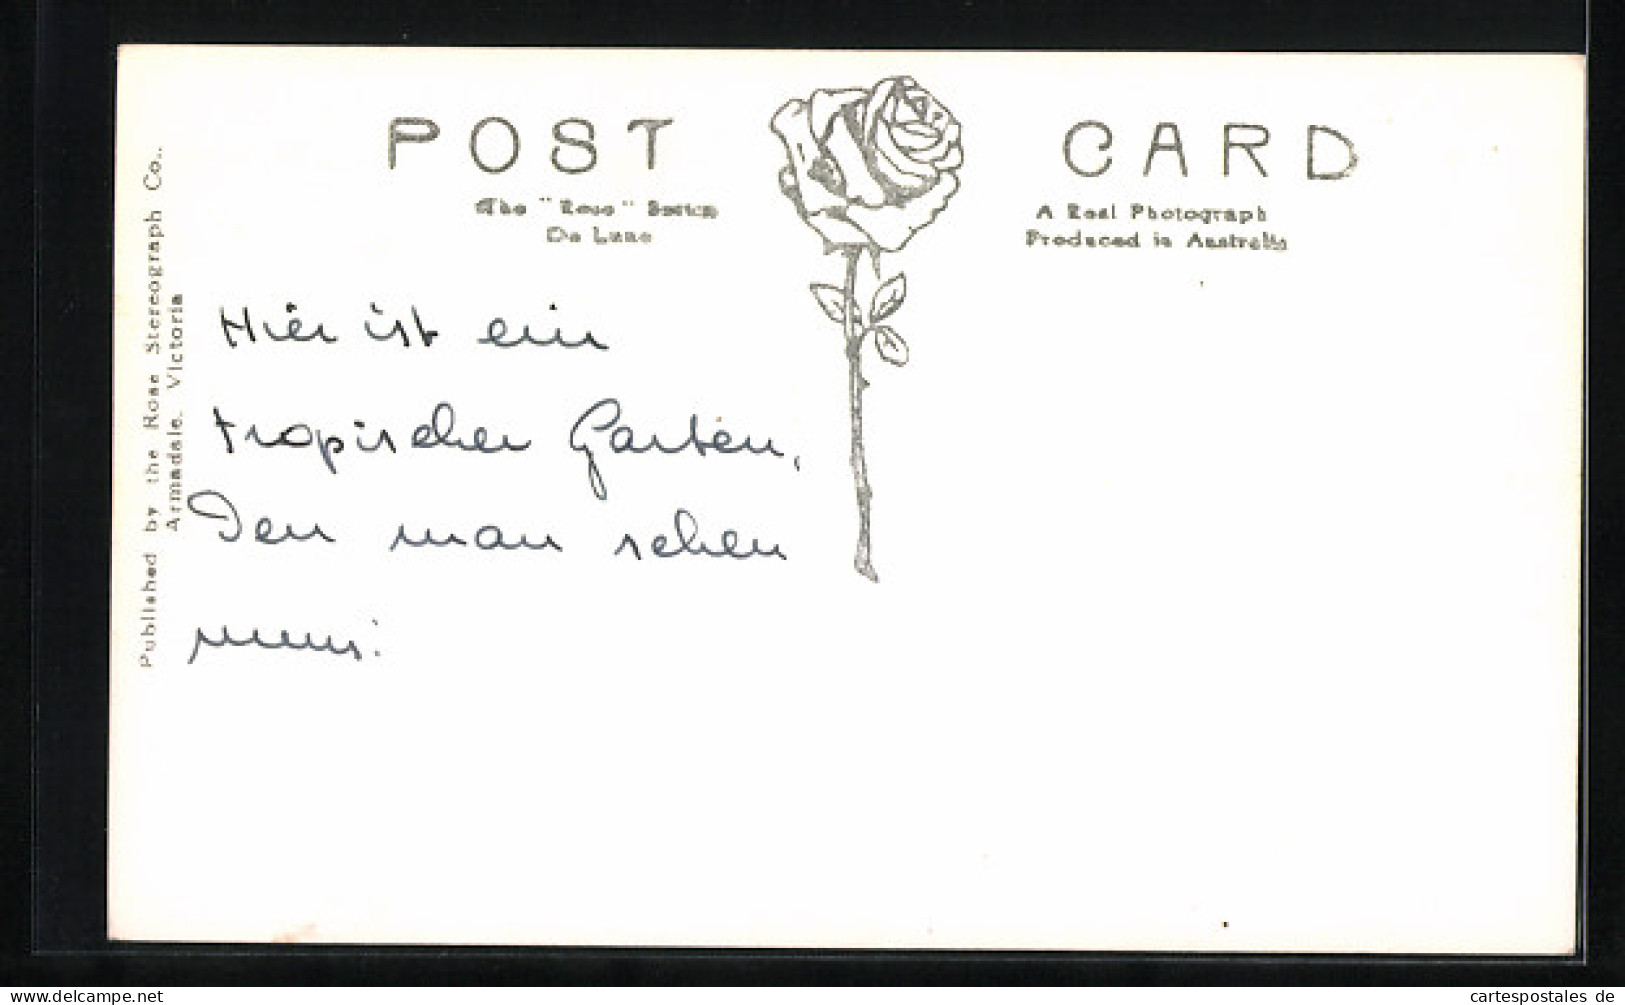 POST CARD
The "Rose" Series
De Luxe
A Real Photograph
Produced in Australia
Published by the Rose Stereograph Co.,
Armadale, Victoria
Hier ist ein
tropischer Garten,
Den man sehen
muss.
cartespostales de
https://www.cartespostales.eu